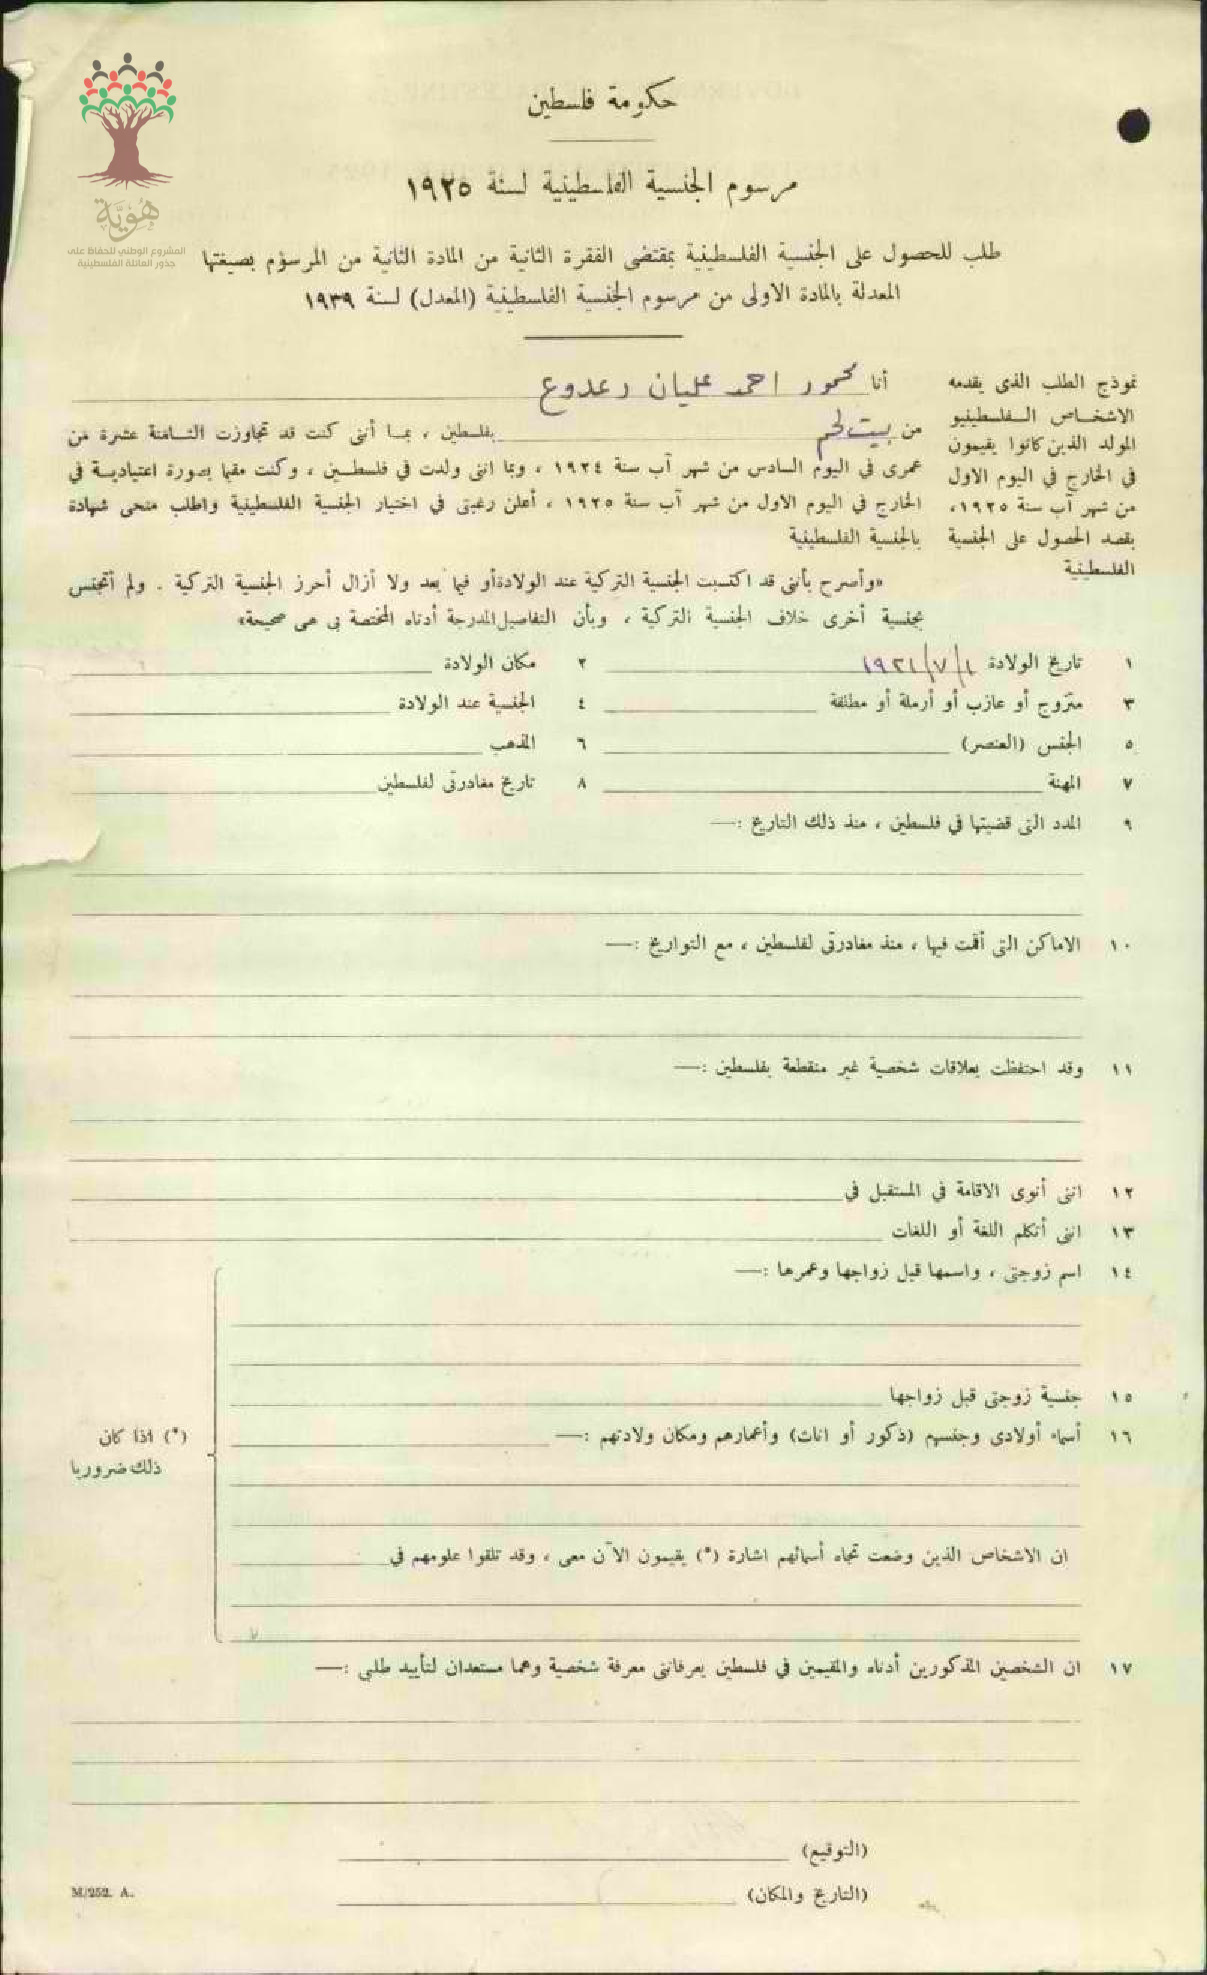 هُوِيَّة
المشروع الوطني للحفاظ على
جذور العائلة الفلسطينية
حكومة فلسطين
مرسوم الجنسية الفلسطينية لسنة ١٩٢٥
طلب للحصول على الجنسية الفلسطينية بمقتضى الفقرة الثانية من المادة الثانية من المرسوم بصيغتها
المعدلة بالمادة الاولى من مرسوم الجنسية الفلسطينية (المعدل) لسنة ١٩٣٩
نموذج الطلب الذى يقدمه
الاشخاص الفلسطينيو
المولد الذين كانوا يقيمون
في الخارج في اليوم الاول
من شهر آب سنة ١٩٢٥،
بقصد الحصول على الجنسية
الفلسطينية
أنا محمود احمد عليان
من بيت لحم بفلسطين ، بما أننى كنت قد تجاوزت الثامنة عشرة من
عمرى في اليوم السادس من شهر آب سنة ١٩٢٤ ، وبما اننى ولدت في فلسطين ، وكنت مقيما بصورة اعتيادية في
الخارج في اليوم الاول من شهر آب سنة ١٩٢٥ ، أعلن رغبتى في اختيار الجنسية الفلسطينية واطلب منحى شهادة
بالجنسية الفلسطينية
«وأصرح بأننى قد اكتسبت الجنسية التركية عند الولادة أو فيما بعد ولا أزال أحرز الجنسية التركية . ولم أتجنس
بجنسية أخرى خلاف الجنسية التركية ، وبأن التفاصيل المدرجة أدناه المختصة بى هى صحيحة»
١ تاريخ الولادة ١/٧/١٩٢١ ٢ مكان الولادة
٣ متزوج أو عازب أو أرملة أو مطلقة ٤ الجنسية عند الولادة
٥ الجنس (العنصر) ٦ المذهب
٧ المهنة ٨ تاريخ مغادرتى لفلسطين
٩ المدد التى قضيتها في فلسطين ، منذ ذلك التاريخ :—
١٠ الاماكن التى أقمت فيها ، منذ مغادرتى لفلسطين ، مع التواريخ :—
١١ وقد احتفظت بعلاقات شخصية غير منقطعة بفلسطين :—
١٢ اننى أنوى الاقامة في المستقبل في
١٣ اننى أتكلم اللغة أو اللغات
١٤ اسم زوجتى ، واسمها قبل زواجها وعمرها :—
١٥ جنسية زوجتى قبل زواجها
١٦ أسماء أولادى وجنسهم (ذكور أو اناث) وأعمارهم ومكان ولادتهم :—
(*) اذا كان
ذلك ضروريا
ان الاشخاص الذين وضعت تجاه أسمائهم اشارة (*) يقيمون الآن معى ، وقد تلقوا علومهم في
١٧ ان الشخصين المذكورين أدناه والمقيمين في فلسطين يعرفاننى معرفة شخصية وهما مستعدان لتأييد طلبي :—
(التوقيع)
(التاريخ والمكان)
M/252. A.